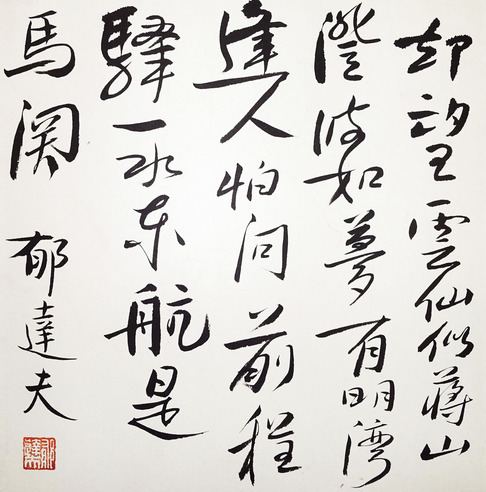 却望雲仙似蒋山
澄波如夢有明湾
逢人怕问前程
驛一水東航是
馬関
郁達夫